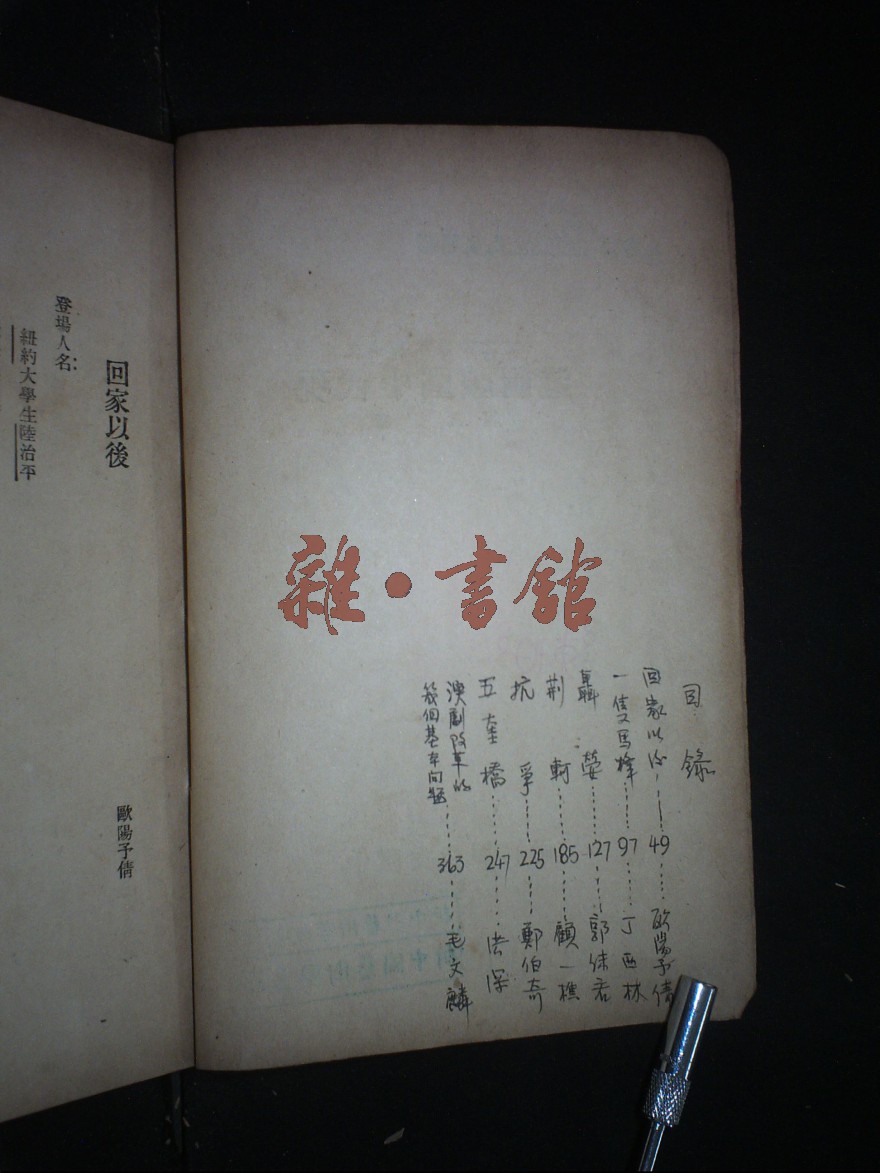 雜•書館
目錄
回家以後——49……歐陽予倩
一隻馬蜂……97……丁西林
聶嫈……127……郭沫若
荆軻……185……顧一樵
抗爭……225……鄭伯奇
五奎橋……247……洪深
演劇改革的
幾個基本問題……363……毛文麟
回家以後
歐陽予倩
登場人名：
紐約大學生陸治平